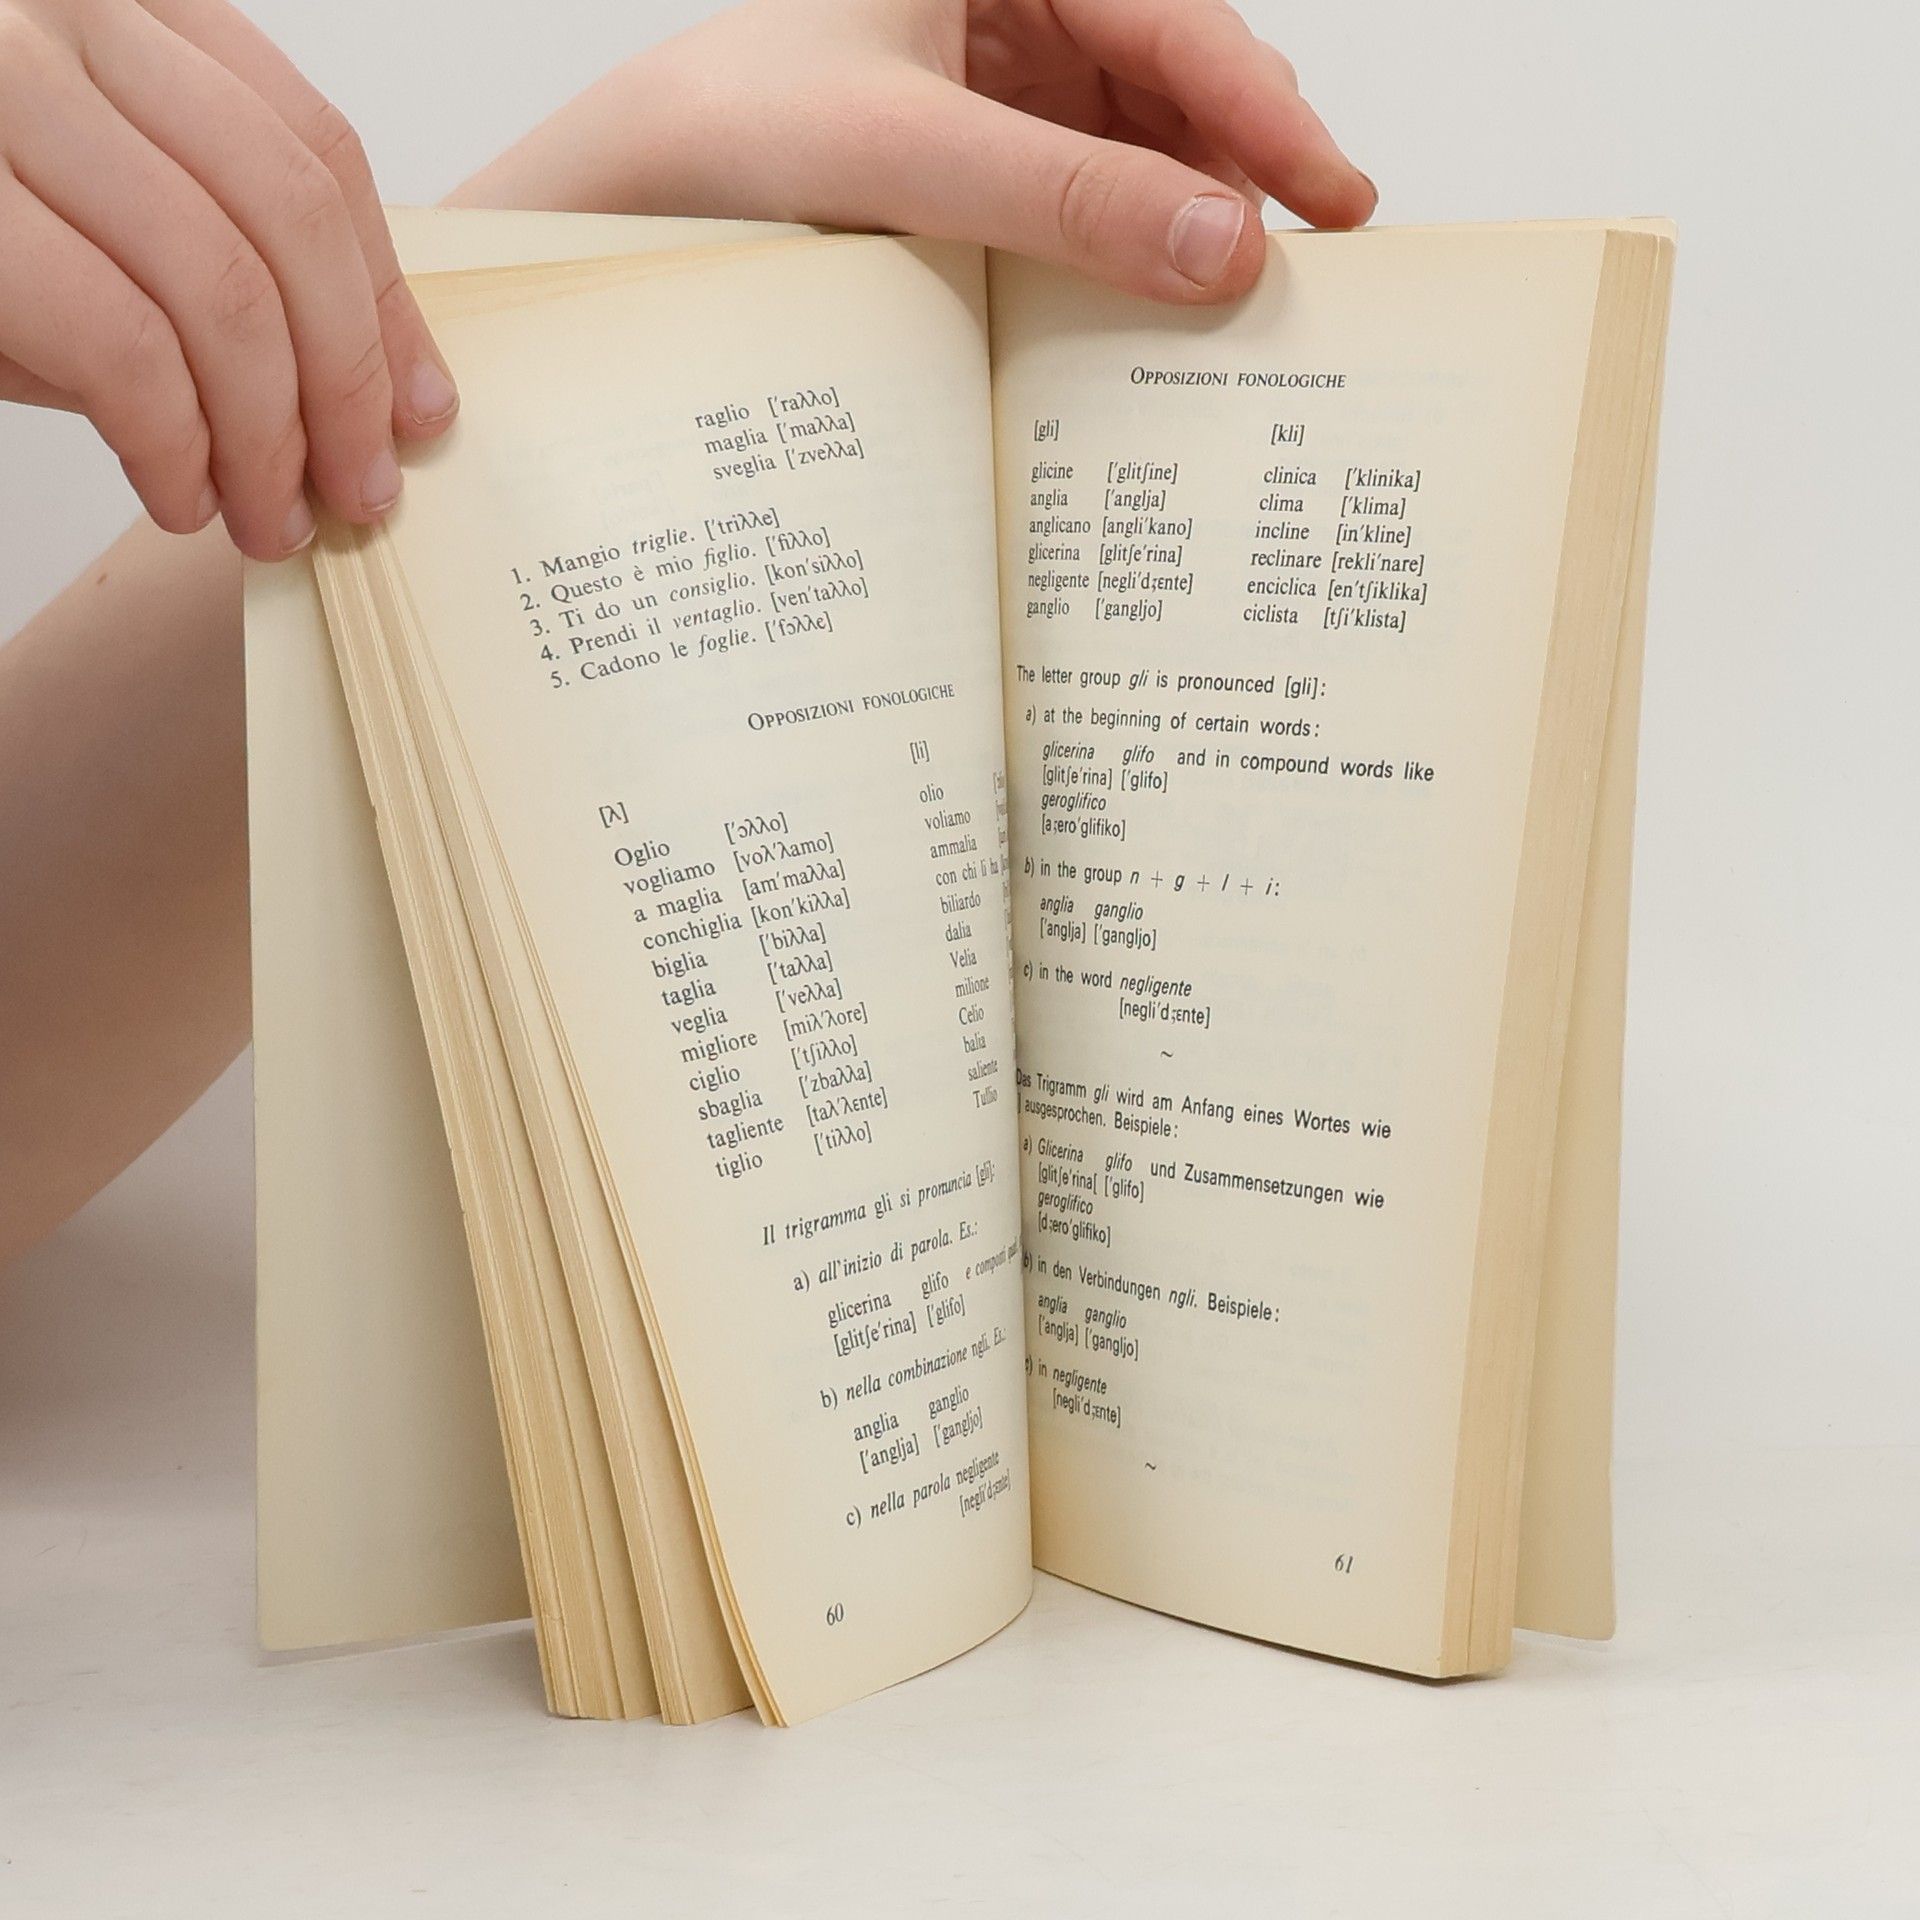 raglio ['raλλo]
maglia ['maλλa]
sveglia ['zveλλa]
1. Mangio triglie. ['triλλe]
2. Questo è mio figlio. ['fiλλo]
3. Ti do un consiglio. [kon'siλλo]
4. Prendi il ventaglio. [ven'taλλo]
5. Cadono le foglie. ['fɔλλe]
OPPOSIZIONI FONOLOGICHE
[λ] [li]
Oglio ['ɔλλo] olio
vogliamo [voλ'λamo] voliamo
a maglia [am'maλλa] ammalia
conchiglia [kon'kiλλa] con chi li ha
biglia ['biλλa] biliardo
taglia ['taλλa] dalia
veglia ['veλλa] Velia
migliore [miλ'λore] milione
ciglio ['tʃiλλo] Celio
sbaglia ['zbaλλa] balia
tagliente [taλ'λɛnte] saliente
tiglio ['tiλλo] Tullio
Il trigramma gli si pronuncia [gli]:
a) all'inizio di parola. Es.:
glicerina glifo e composti
[glitʃe'rina] ['glifo]
b) nella combinazione ngli. Es.:
anglia ganglio
['anglja] ['gangljo]
c) nella parola negligente
[negli'dʒɛnte]
60
OPPOSIZIONI FONOLOGICHE
[gli] [kli]
glicine ['glitʃine] clinica ['klinika]
anglia ['anglja] clima ['klima]
anglicano [angli'kano] incline [in'kline]
glicerina [glitʃe'rina] reclinare [rekli'nare]
negligente [negli'dʒɛnte] enciclica [en'tʃiklika]
ganglio ['gangljo] ciclista [tʃi'klista]
The letter group gli is pronounced [gli]:
a) at the beginning of certain words:
glicerina glifo and in compound words like
[glitʃe'rina] ['glifo]
geroglifico
[aʒero'glifiko]
b) in the group n + g + l + i:
anglia ganglio
['anglja] ['gangljo]
c) in the word negligente
[negli'dʒɛnte]
~
Das Trigramm gli wird am Anfang eines Wortes wie
] ausgesprochen. Beispiele:
a) Glicerina glifo und Zusammensetzungen wie
[glitʃe'rina[ ['glifo]
geroglifico
[dʒero'glifiko]
b) in den Verbindungen ngli. Beispiele:
anglia ganglio
['anglja] ['gangljo]
c) in negligente
[negli'dʒɛnte]
~
61